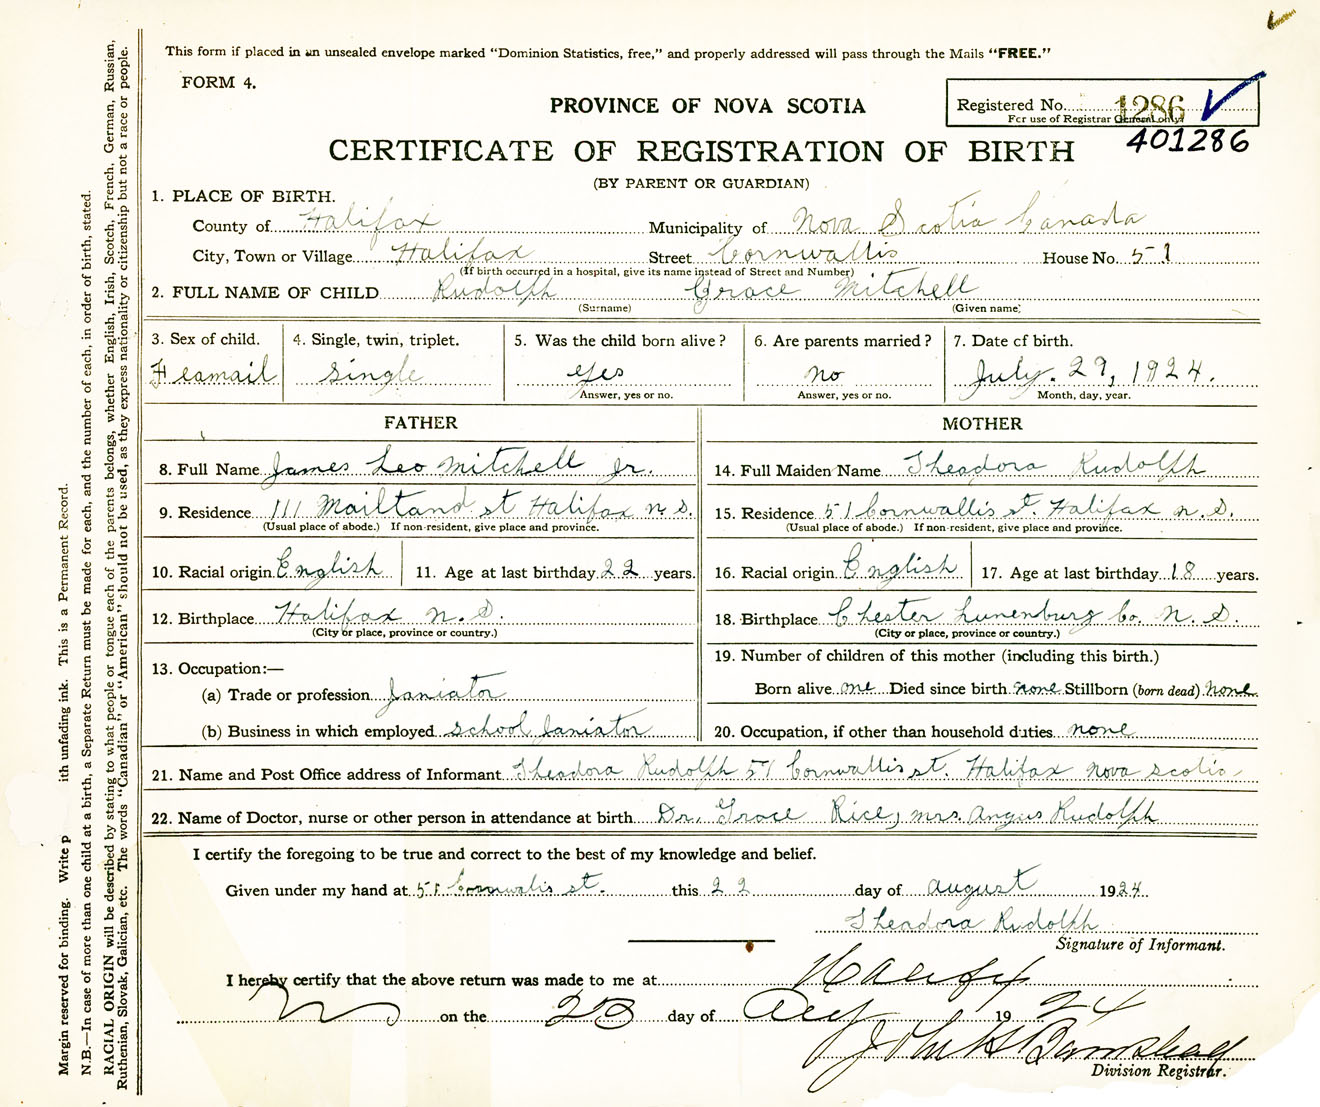 This form if placed in an unsealed envelope marked “Dominion Statistics, free,” and properly addressed will pass through the Mails “FREE.”
FORM 4.
PROVINCE OF NOVA SCOTIA
Registered No. 1286
For use of Registrar General only
401286
CERTIFICATE OF REGISTRATION OF BIRTH
(BY PARENT OR GUARDIAN)
1. PLACE OF BIRTH.
County of Halifax Municipality of Nova Scotia Canada
City, Town or Village Halifax Street Cornwallis House No. 51
(If birth occurred in a hospital, give its name instead of Street and Number)
2. FULL NAME OF CHILD Rudolph Grace Mitchell
(Surname) (Given name)
3. Sex of child. 4. Single, twin, triplet. 5. Was the child born alive? 6. Are parents married? 7. Date of birth.
Feamail single yes no July. 29, 1924.
Answer, yes or no. Answer, yes or no. Month, day, year.
FATHER MOTHER
8. Full Name James Leo Mitchell Jr. 14. Full Maiden Name Theadora Rudolph
9. Residence 111 Mailtand st Halifax n.S. 15. Residence 51 Cornwallis st Halifax n.S.
(Usual place of abode.) If non-resident, give place and province. (Usual place of abode.) If non-resident, give place and province.
10. Racial origin English 11. Age at last birthday 22 years. 16. Racial origin English 17. Age at last birthday 18 years.
12. Birthplace Halifax n.S. 18. Birthplace Chester Lunenburg Co. N.S.
(City or place, province or country.) (City or place, province or country.)
13. Occupation:—
(a) Trade or profession Janiator
(b) Business in which employed school Janiator
19. Number of children of this mother (including this birth.)
Born alive one Died since birth none Stillborn (born dead) none
20. Occupation, if other than household duties none
21. Name and Post Office address of Informant Theadora Rudolph 51 Cornwallis st. Halifax nova scotia
22. Name of Doctor, nurse or other person in attendance at birth Dr. Grace Rice, mrs. Angus Rudolph
I certify the foregoing to be true and correct to the best of my knowledge and belief.
Given under my hand at 51 Cornwalis st. this 22 day of august 1924
Theadora Rudolph
Signature of Informant.
I hereby certify that the above return was made to me at
on the 23 day of 1924
Division Registrar.
Margin reserved for binding. Write p ith unfading ink. This is a Permanent Record.
N.B.—In case of more than one child at a birth, a Separate Return must be made for each, and the number of each, in order of birth, stated.
RACIAL ORIGIN will be described by stating to what people or tongue each of the parents belongs, whether English, Irish, Scotch, French, German, Russian,
Ruthenian, Slovak, Galician, etc. The words “Canadian” or “American” should not be used, as they express nationality or citizenship but not a race or people.